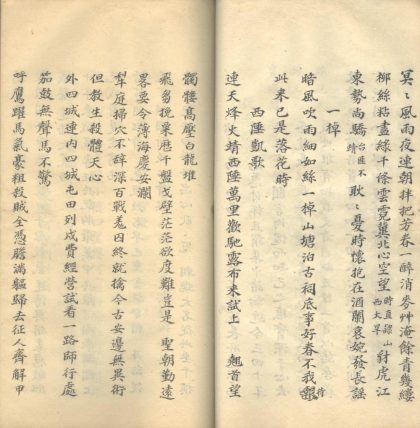 冥〻風雨夜連朝拌把芳春一醉消麥艸淹餘青幾縷
柳絲粘盡綠千條雲霓冀北心空望時直隸山西大旱對虎江
東勢尚驕台匪不靖耿〻憂時懷抱在酒闌哀婉發長謠
一棹
暗風吹雨細如絲一棹山塘泊古祠底事好春不我待
此来已是落花時
西陲凱歌
連天烽火靖西陲萬里歡馳露布来試上 翹首望
髑髏髙壓白龍堆
飛芻挽粟歷千盤戈壁茫茫欲度難豈是 聖朝勤遠
畧要令薄海慶安瀾
犁庭掃穴不辭深百戰羌囚終就擒今古安邊無異術
但教生殺體天心
外四城連內四城屯田列戍費經營試看一路師行處
笳鼓無聲馬不驚
呼鷹躍馬氣豪粗殺賊全憑膽滿軀歸去征人齊解甲